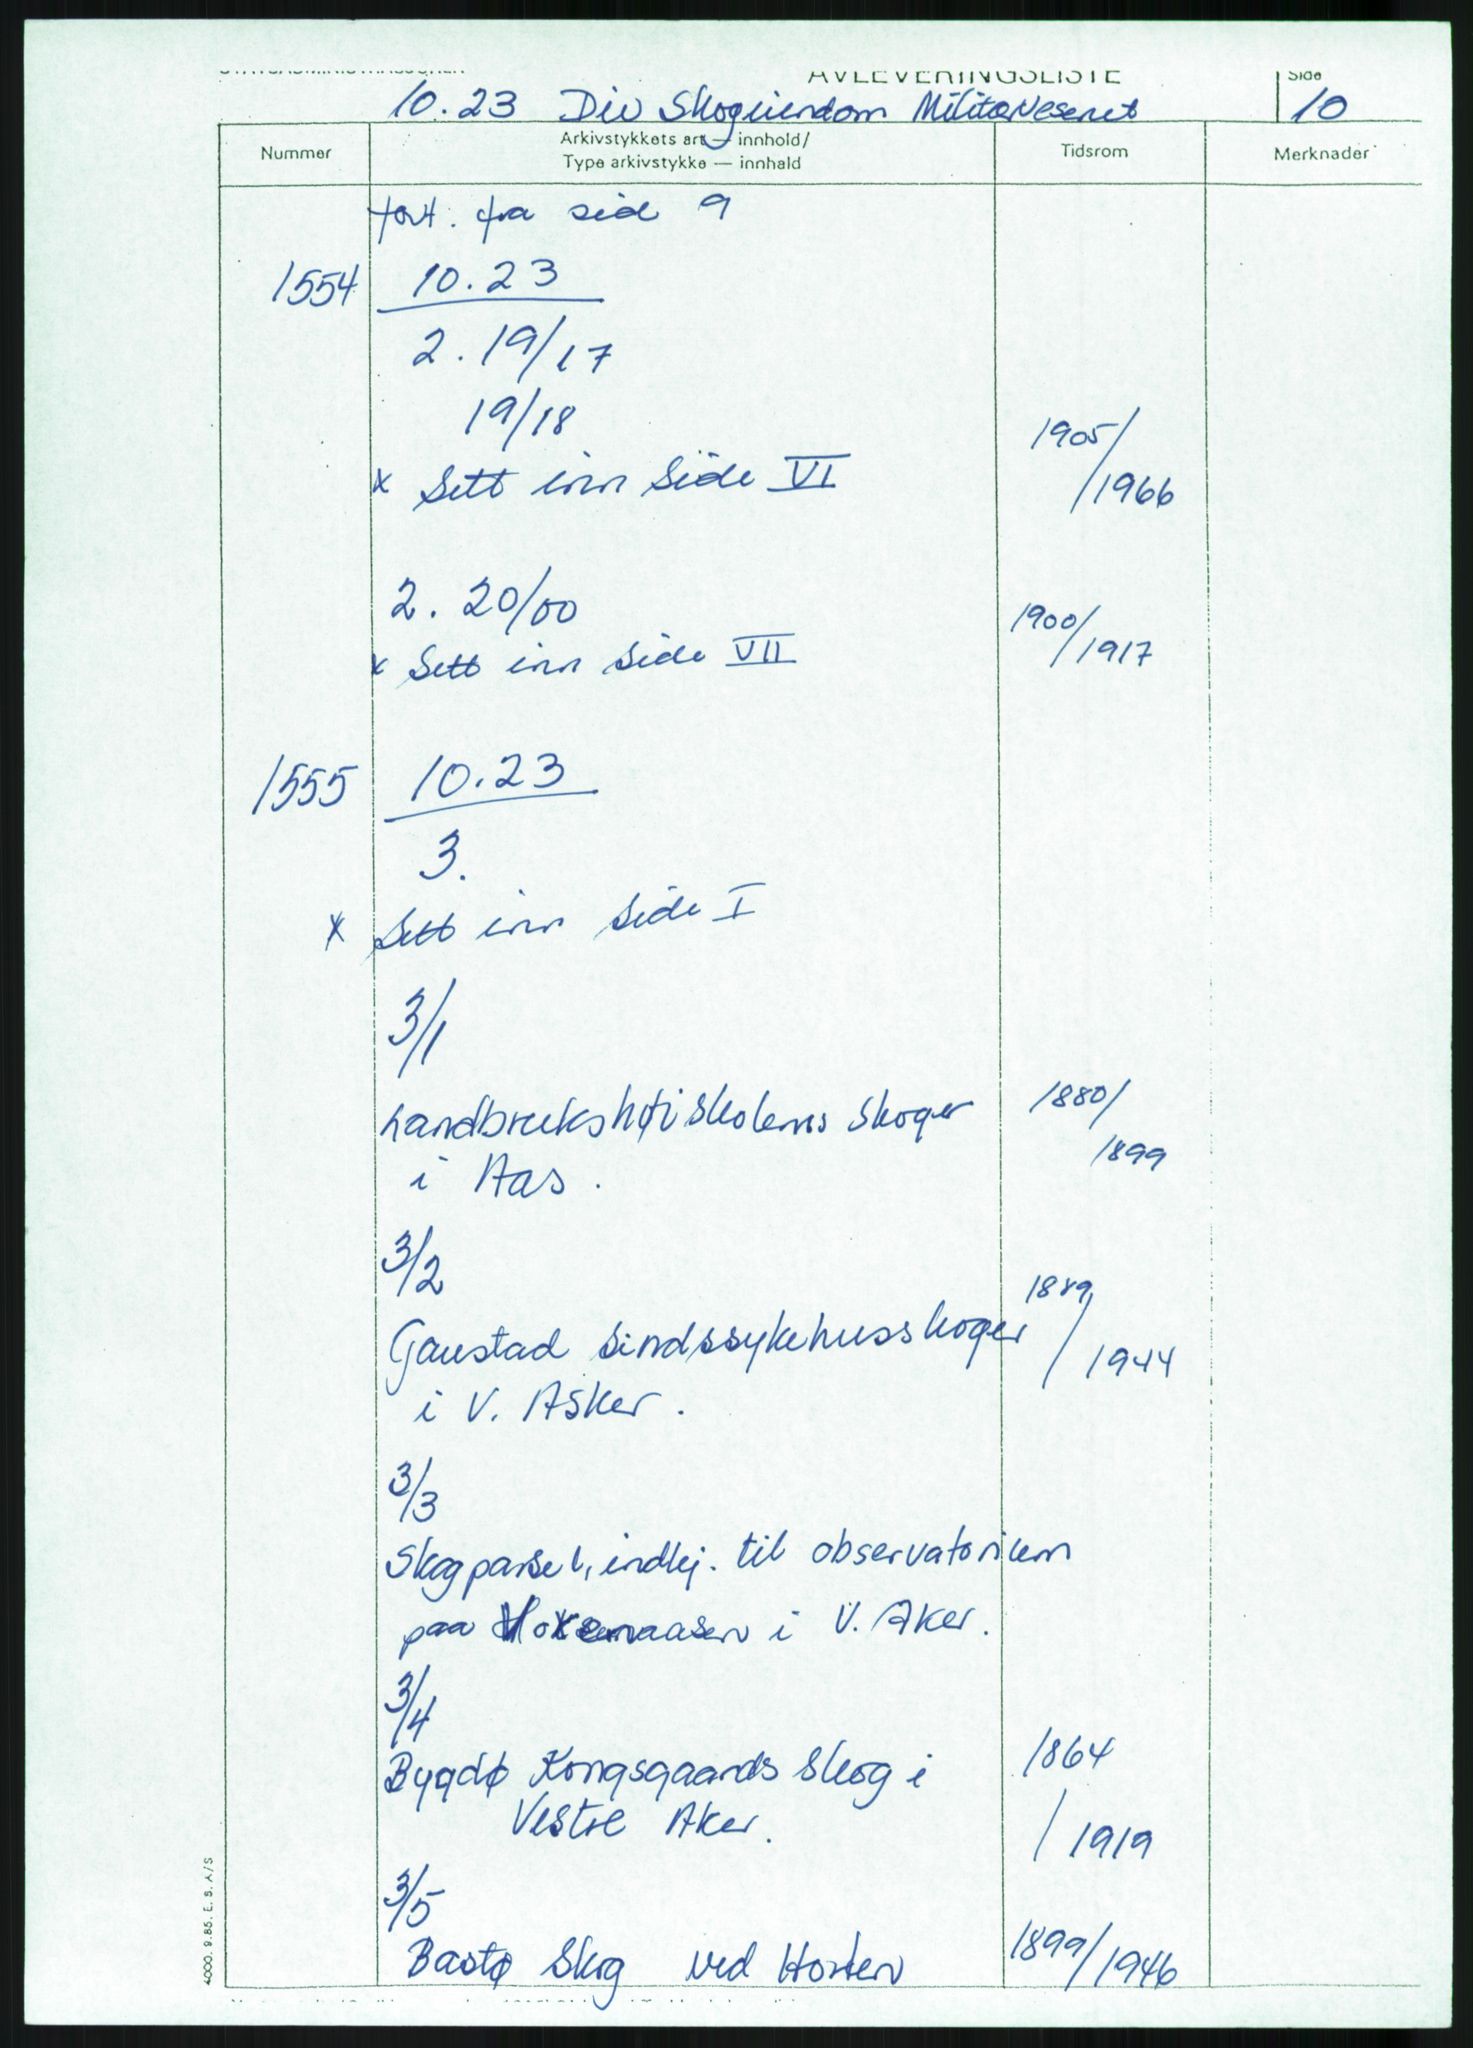 AVLEVERINGSLISTE
Side
10.23 Div Skogeiendom Militærvesenet 10
Nummer
Arkivstykkets art — innhold/
Type arkivstykke — innhald
Tidsrom
Merknader
fort. fra side 9
1554 10.23
2. 19/17
19/18
x Sett inn Side VI 1905/
/1966
2. 20/00
x Sett inn side VII 1900/
/1917
1555 10.23
3.
x Sett inn side I
3/1
Landbrukshøiskolens skoger 1880/
i Aas. 1899
3/2
Gaustad sindssykehusskoger 1889
i V. Asker. /1944
3/3
Skogparsel, indkj. til observatorium
paa i V. Aker.
3/4
Bygdø Kongsgaards Skog i 1864
Vestre Aker. /1919
3/5
Bastø Skog ved Horten 1899/1946
4000. 9.85. E. S. A/S